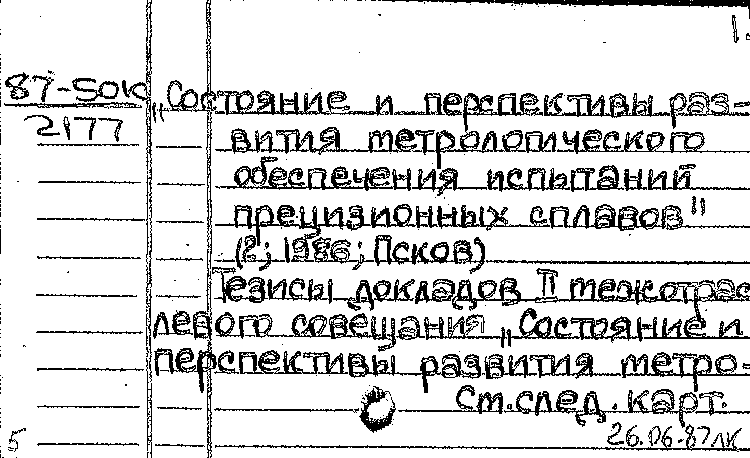 1.
87-50К „Состояние и перспективы раз-
2177 вития метрологического
обеспечения испытаний
прецизионных сплавов"
(2; 1986; Псков)
Тезисы докладов II межотрас
левого совещания „Состояние и
перспективы развития метро-
См. след. карт.
26.06.87лк
5